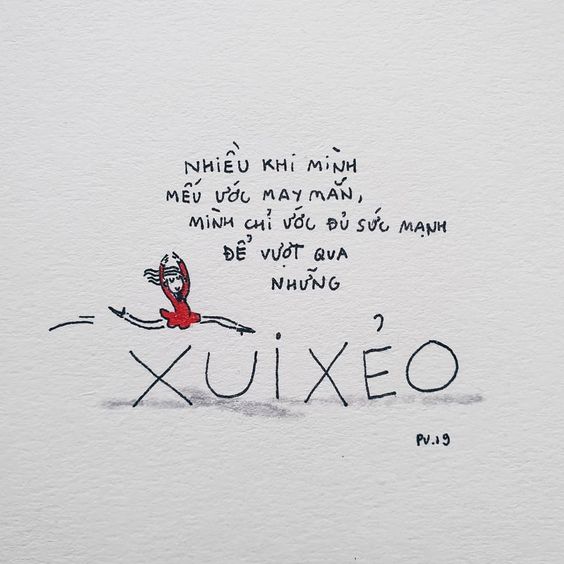 NHIỀU KHI MÌNH
MẾU ƯỚC MAY MẮN,
MÌNH CHỈ ƯỚC ĐỦ SỨC MẠNH
ĐỂ VƯỢT QUA
NHỮNG
XUI XẺO
PV.19